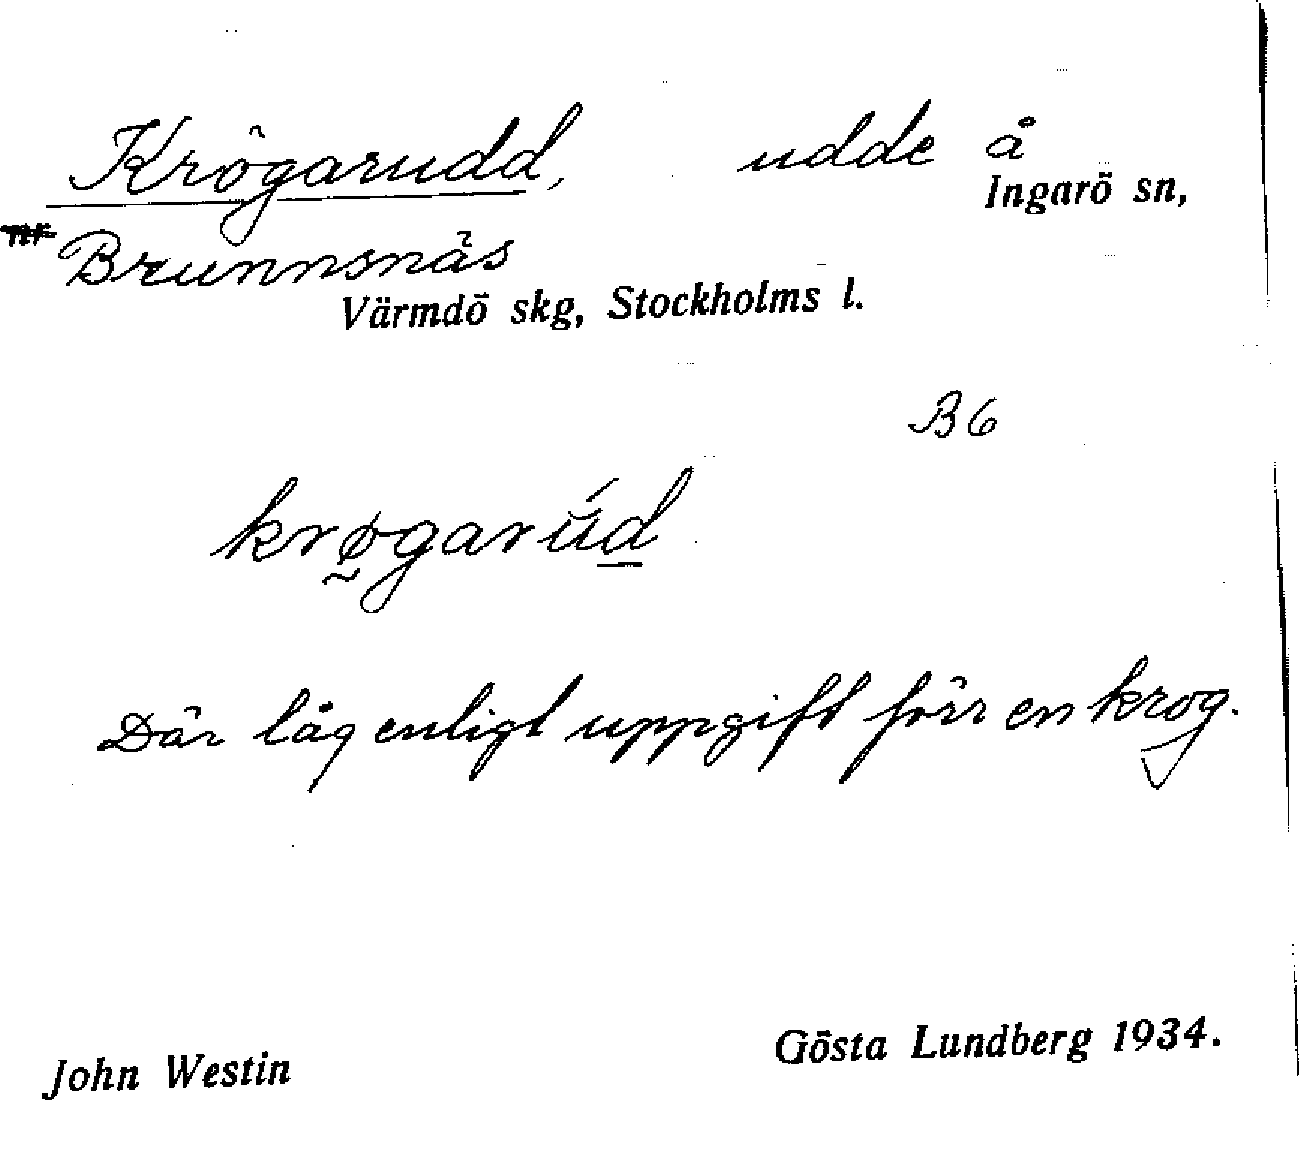 Krögarudd, udde å
Ingarö sn,
Brunnsnäs
Värmdö skg, Stockholms l.
B6
krøgarúd
Där låg enligt uppgift förr en krog.
John Westin
Gösta Lundberg 1934.